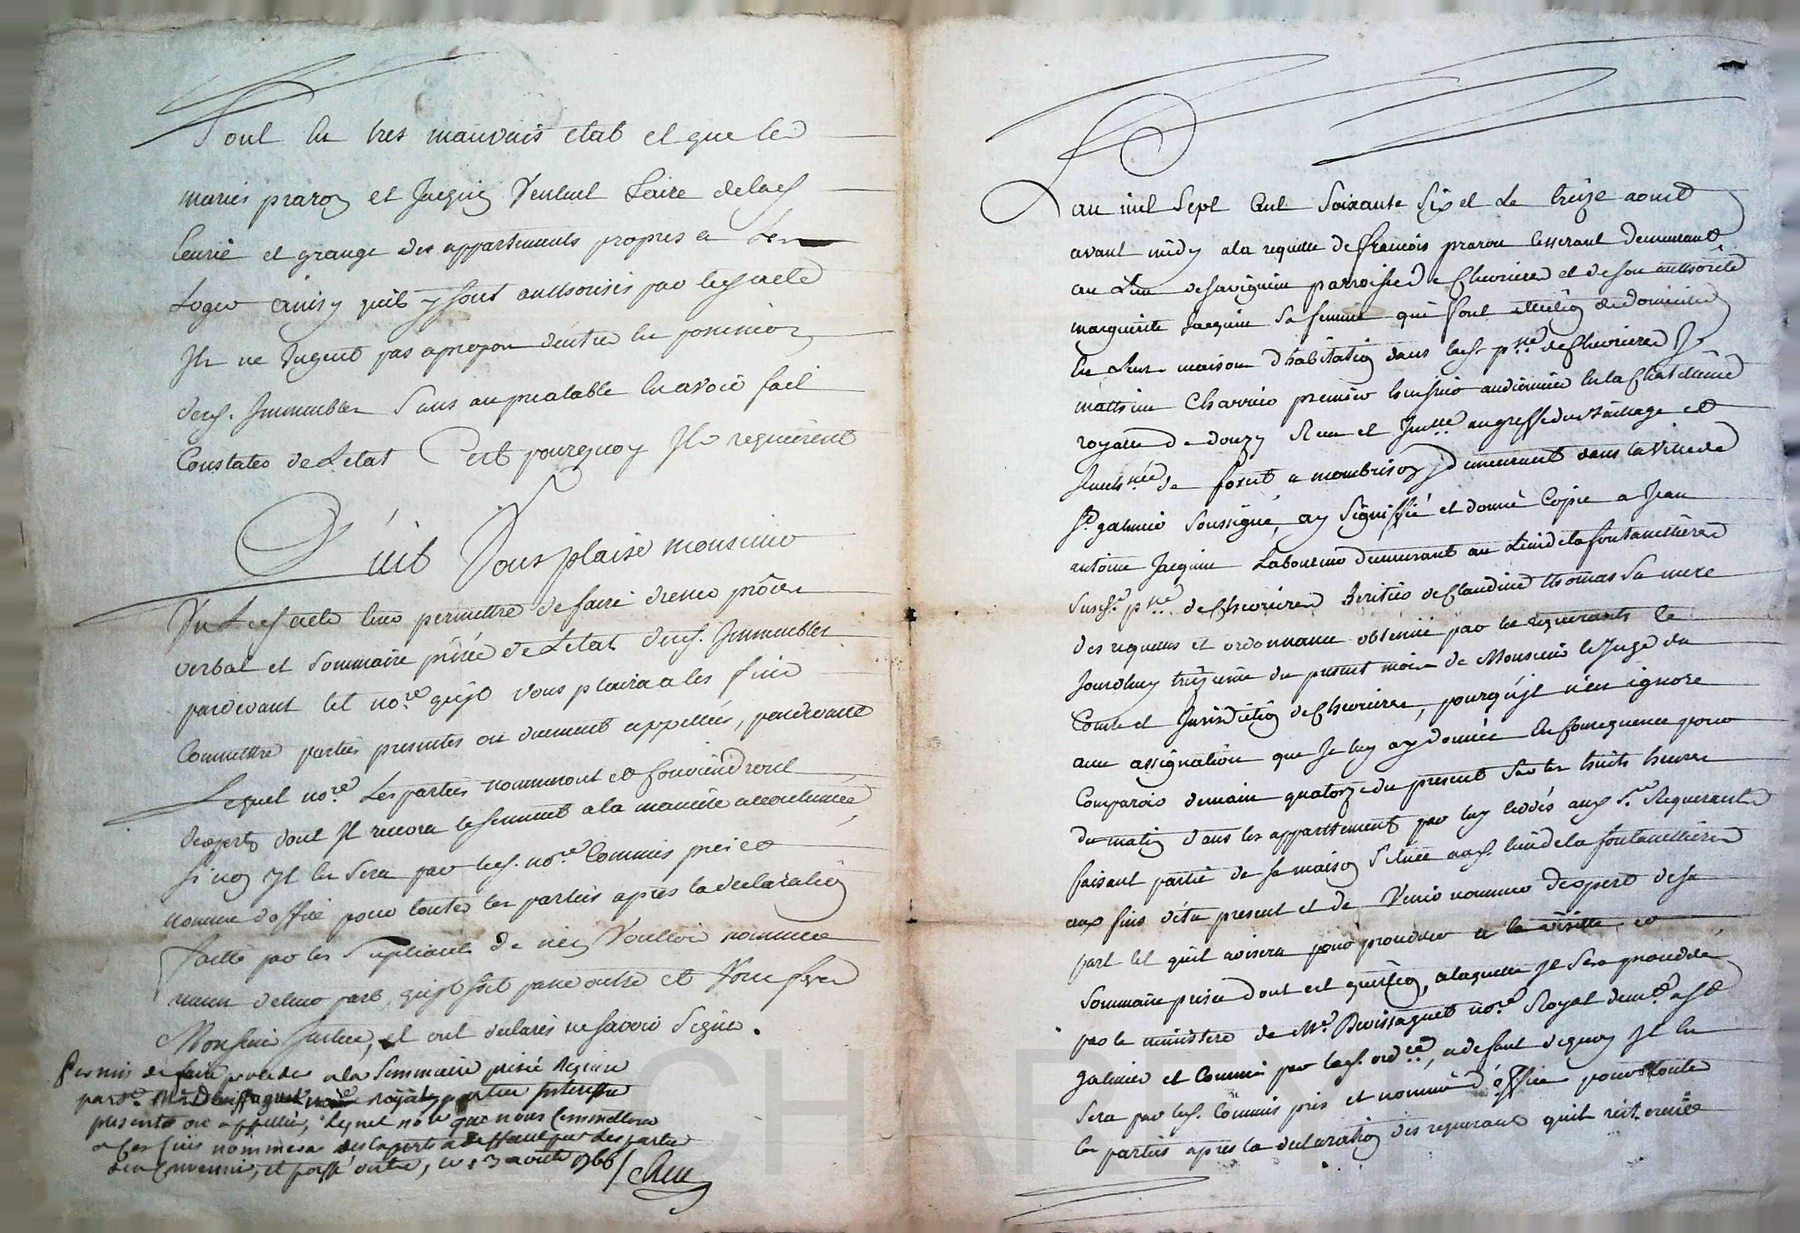 sont en tres mauvais etat et que les
mariés praron et Jacquin veulent faire de lad.
ecurie et grange des appartements propres a
loger ainsy quils y sont authorisés par led. acte
Ils ne Jugent pas apropos d'entrer en possession
desd. Immeubles sans au prealable en avoir fait
Constater de Letat C'est pourquoy Ils requierent
Qu'il Vous plaise monsieur
Vu Led. acte leur permettre de faire dresser procés
verbal et sommaire prisée de Letat desd. Immeubles
pardevant tel no.re qu'il vous plaira a les fins
Commettre parties presentes ou duement appellées, pardevant
Lequel no.re Les parties nommeront et conviendront
d'experts dont Il recevra le serment a la maniere accoutumée
si non Il en sera par led. no.re Commis pris et
nommé d'office pour toutes les parties apres la declaration
faitte par les supliants de n'en vouloir nommer
aucun de leur part, qu'il soit passé outre et Vous ferez
Monsieur Justice, et ont declarés ne savoir signer.
Permis de faire proceder a la sommaire prisée Requise
par M.e Devissaguet no.re royal parties Interessées
presentes ou appellées, lequel no.re que nous Commettons
a ces fins nommera des experts a deffaut par les parties
d'en Convenir, et passé outre, ce 13 aoust 1766
L'an mil sept cent soixante six et le treize aoust
avant midy a la requette de francois praron tisserant demeurant
au Lieu de savignieu parroisse de Chevrieres et de son authorité
marguerite Jacquin sa femme qui font election de domicile
en leur maison d'habitation dans lad. p.sse de Chevrieres Je
matthieu Charrier premier huissier audiancier en la Chatelenie
royalle de donzy Receu et Imm.lé au greffe du Bailliage et
Senech.ée de forest a montbrison, demeurant dans la ville de
S.t galmier soussigné, ay signiffié et donné Copie a Jean
antoine Jacquin Laboureur demeurant au Lieu de la fontanellieres
susd. p.sse de Chevrieres heritier de Claudine thomas sa mere
des requette et ordonnance obtenue par les requerants le
Jourdhuy treizieme du present mois de Monsieur le Juge du
Comté et Jurisdiction de Chevrieres, pourqu'il n'en ignore
avec assignation que Je luy ay donnée en consequence pour
Comparoir demain quatorze du present sur les huits heures
du matin dans les appartements par luy Ceddés aux S.rs Requerants
faisant partie de sa maison située aud. lieu de la fontanellieres
aux fins d'etre present et de venir nommer d'expert de sa
part tel quil avisera pour proceder a la visitte et
sommaire prisée dont est question, a laquelle Il sera procedé
par le ministere de M.e Devissaguet no.re Royal dem.t a S.t
galmier et Commis par lad. ord.ce, a defaut dequoy Il en
sera par led. Commis pris et nommé d'office pour toutes
les parties apres la declaration des requerants quil reitereront
CHAREYRO